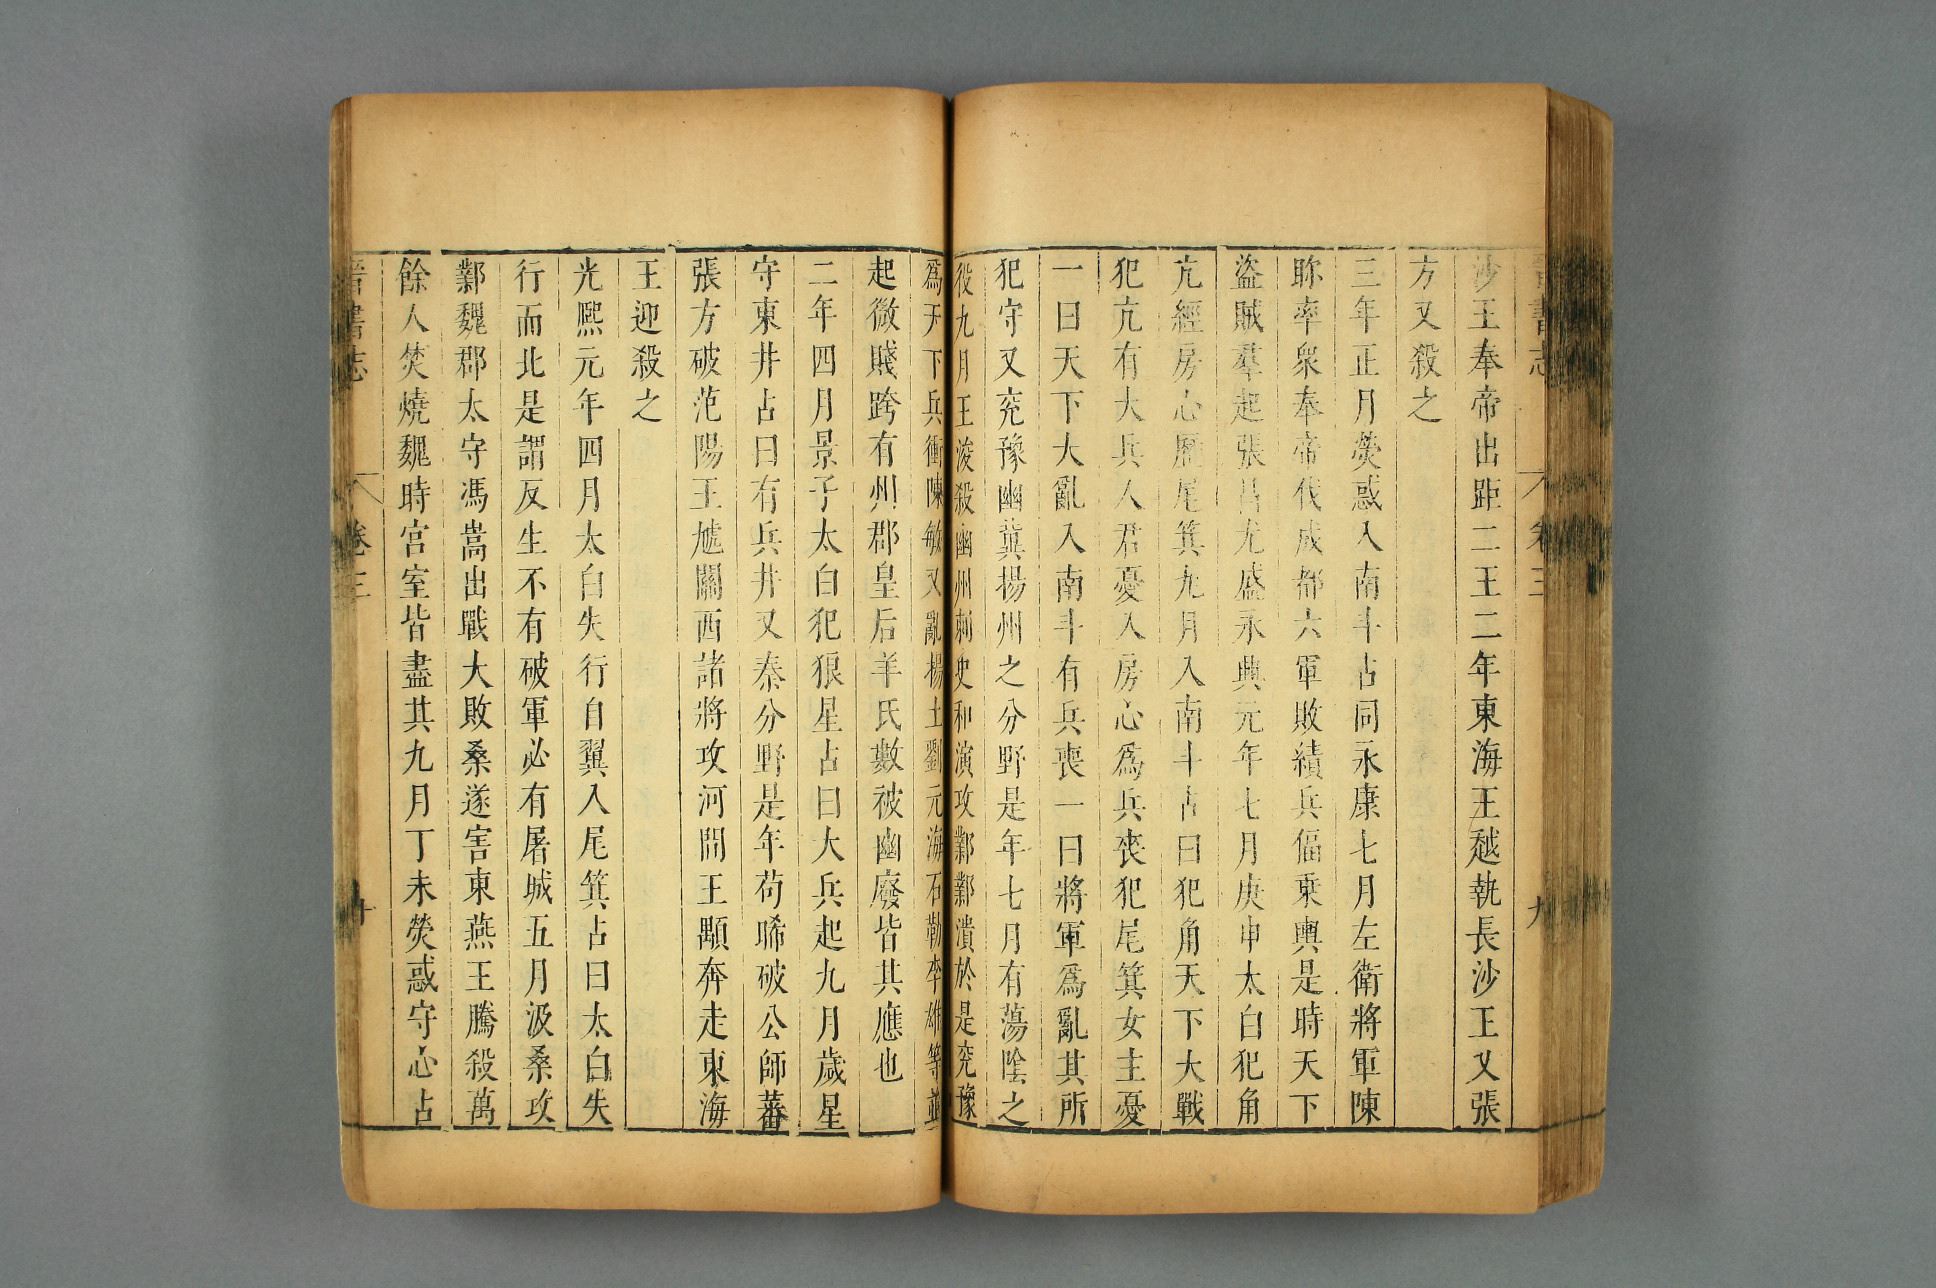 沙王奉帝出距二王二年東海王越執長沙王乂張
方又殺之
三年正月熒惑入南斗占同永康七月左衛將軍陳
眕率衆奉帝伐成都六軍敗績兵偪乗輿是時天下
盜賊羣起張昌尤盛永興元年七月庚申太白犯角
亢經房心歷尾箕九月入南斗占曰犯角天下大戰
犯亢有大兵人君憂入房心爲兵喪犯尾箕女主憂
一曰天下大亂入南斗有兵喪一曰將軍爲亂其所
犯守又兗豫幽冀揚州之分野是年七月有蕩陰之
役九月王浚殺幽州刺史和演攻鄴鄴潰於是兗豫
爲天下兵衝陳敏又亂揚土劉元海石勒李雄等並
起微賤跨有州郡皇后羊氏數被幽廢皆其應也
二年四月景子太白犯狼星占曰大兵起九月歲星
守東井占曰有兵井又秦分野是年苟晞破公師蕃
張方破范陽王虓關西諸將攻河間王顒奔走東海
王迎殺之
光熙元年四月太白失行自翼入尾箕占曰太白失
行而北是謂反生不有破軍必有屠城五月汲桑攻
鄴魏郡太守馮嵩出戰大敗桑遂害東燕王騰殺萬
餘人焚燒魏時宮室皆盡其九月丁未熒惑守心占
晉書志
卷三
九
晉書志
卷三
十